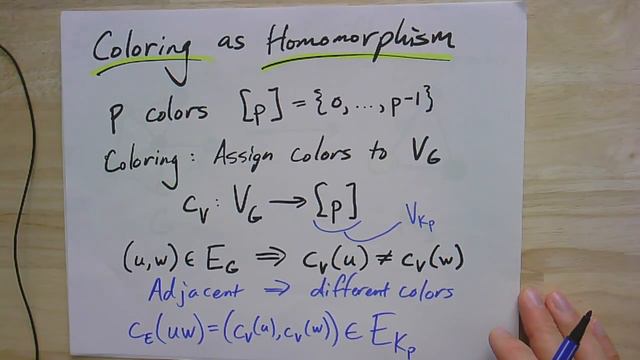 Coloring as Homomorphism
p colors [p] = {0, ..., p-1}
Coloring: Assign colors to V_G
c_V : V_G → [p]
V_{K_p}
(u,w) ∈ E_G ⇒ c_V(u) ≠ c_V(w)
Adjacent ⇒ different colors
c_E(uw) = (c_V(u), c_V(w)) ∈ E_{K_p}